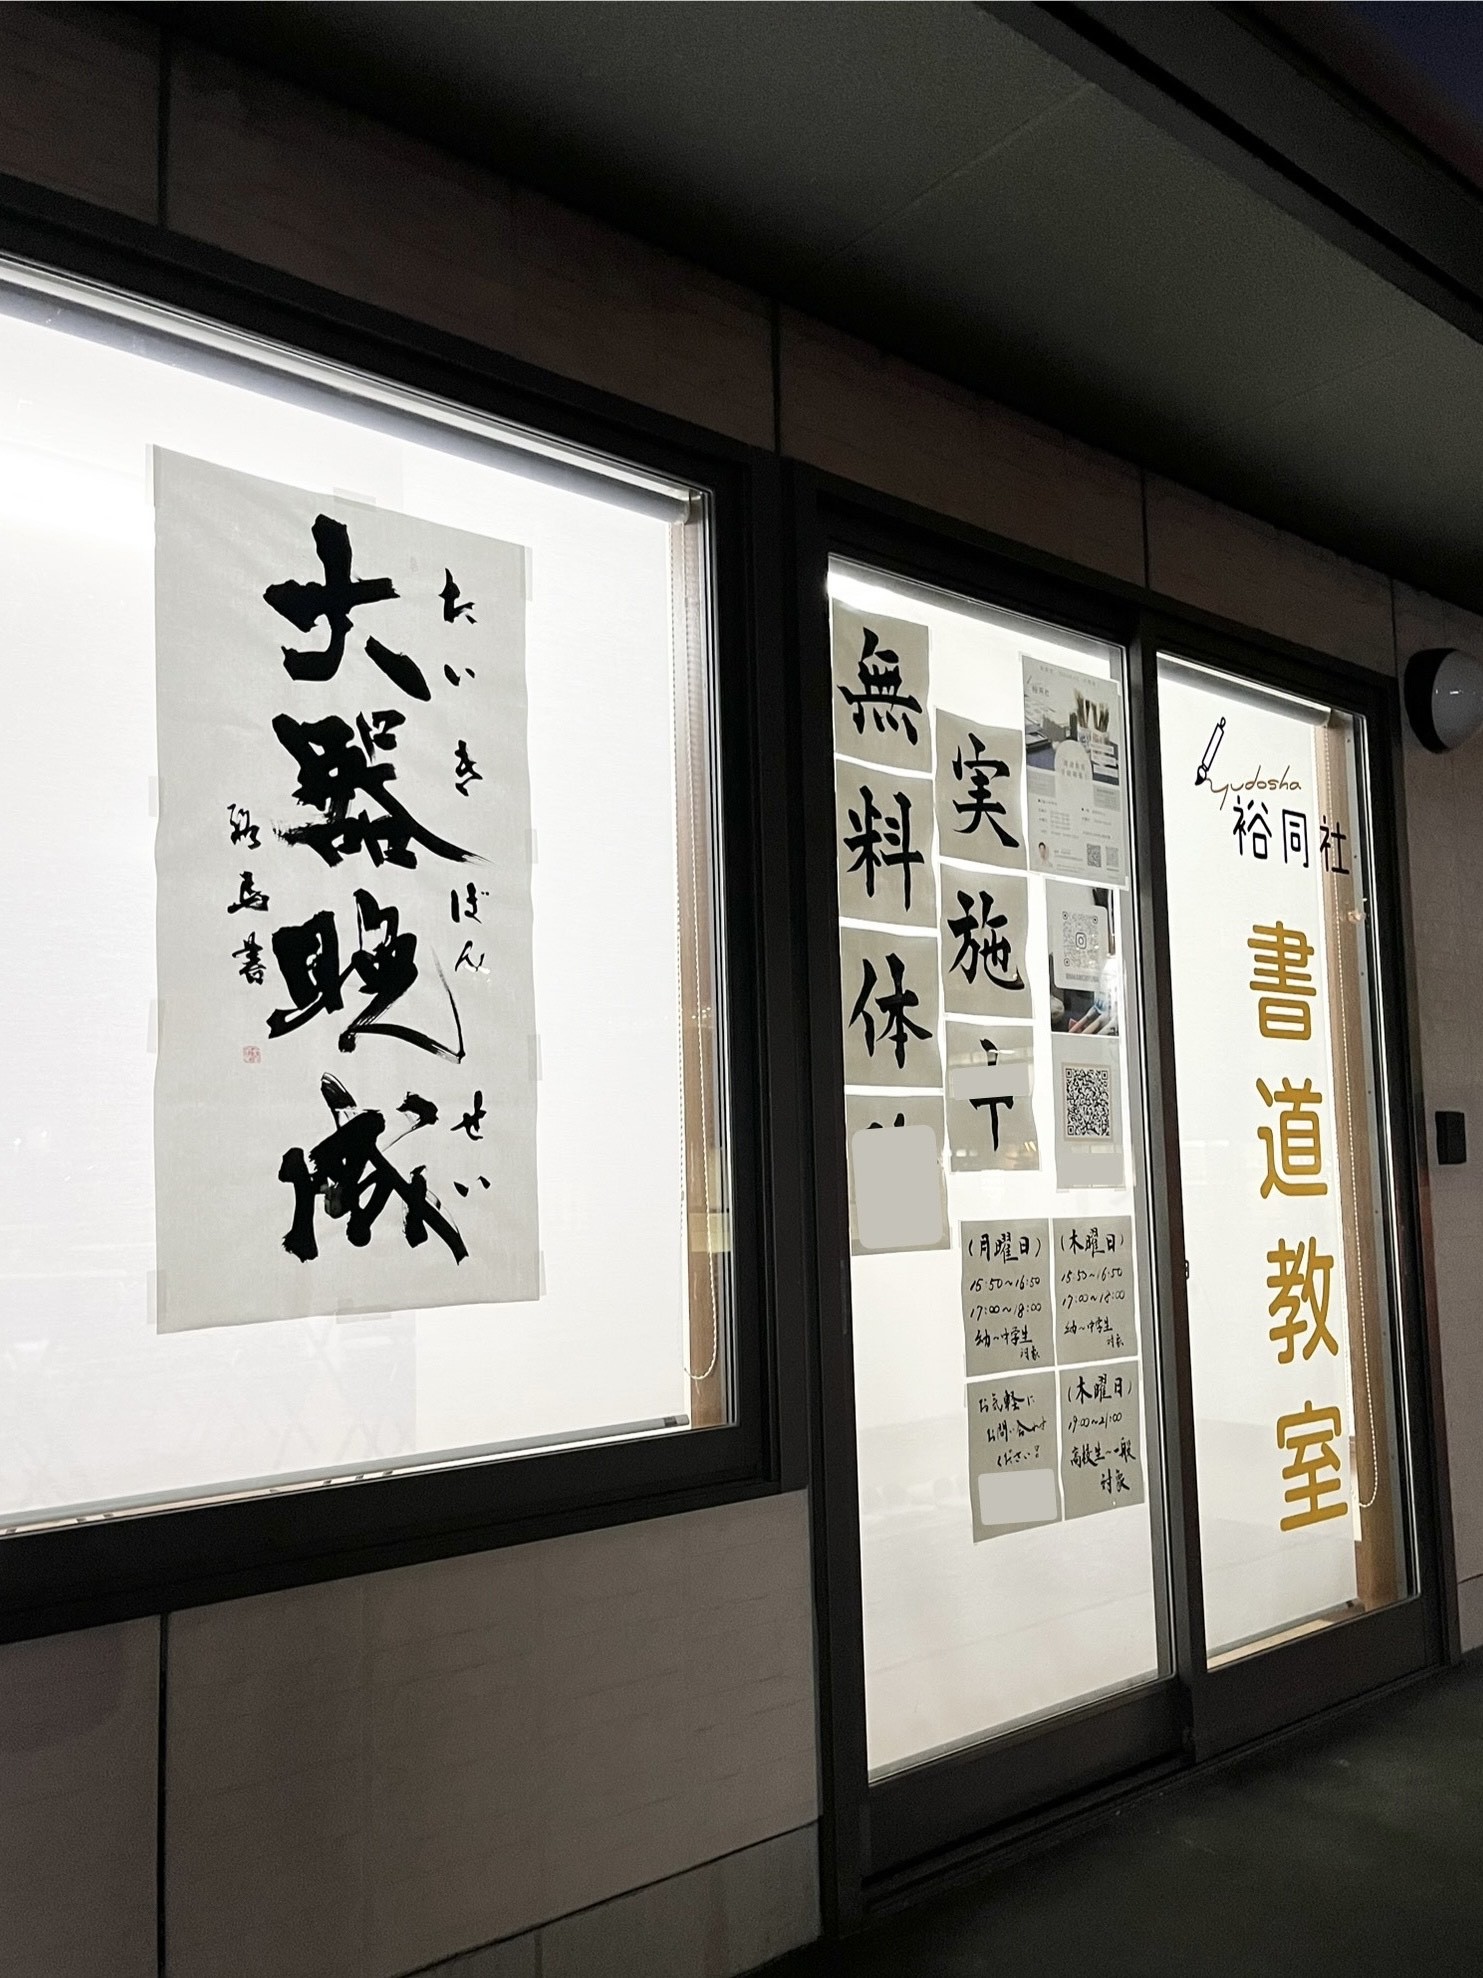 大器晩成
たいきばんせい
書
無料体
実施
(月曜日)
15:50~16:50
17:00~18:00
幼~中学生
対象
(木曜日)
15:50~16:50
17:00~18:00
幼~中学生
対象
お気軽に
お問い合わせ
ください!
(木曜日)
19:00~21:00
高校生~一般
対象
yudosha
裕同社
書道教室